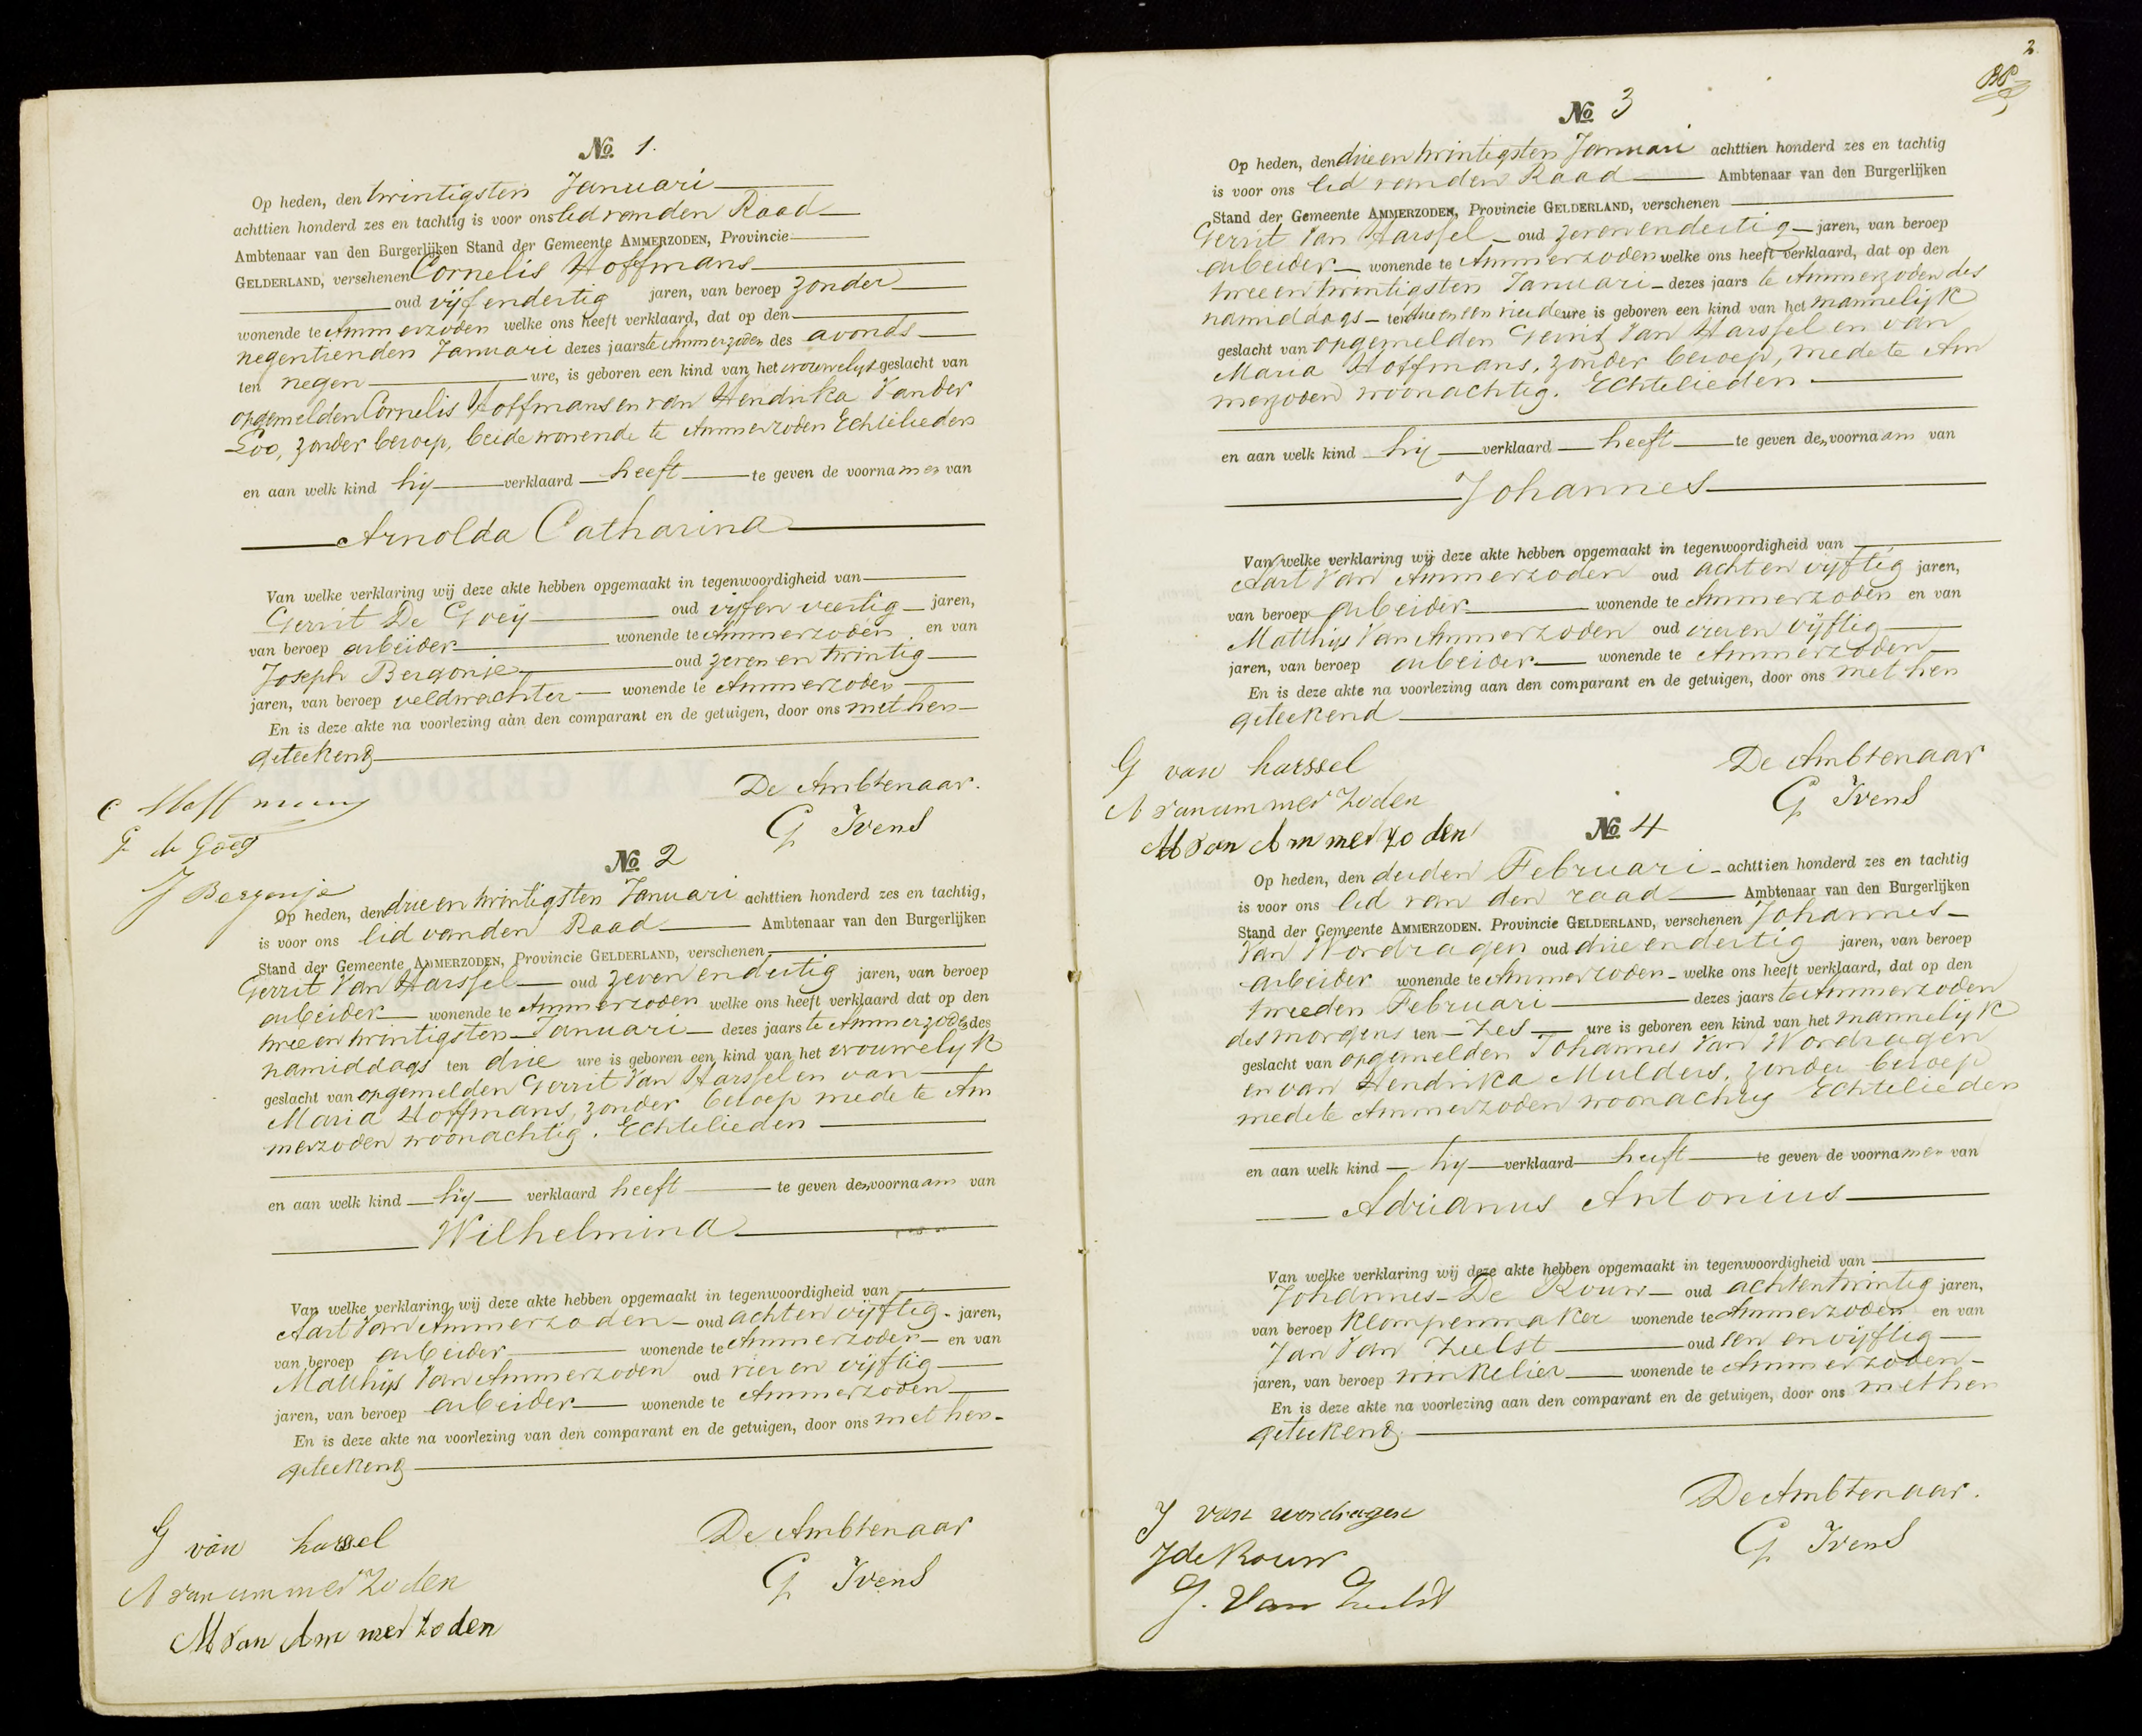 No 1.
Op heden, den twintigsten Januari
achttien honderd zes en tachtig is voor ons lid van den Raad
Ambtenaar van den Burgerlijken Stand der Gemeente AMMERZODEN, Provincie
GELDERLAND, verschenen Cornelis Hoffmans
oud vijfendertig jaren, van beroep zonder
wonende te Ammerzoden welke ons heeft verklaard, dat op den
negentienden Januari dezes jaars te Ammerzoden des avonds
ten negen ure, is geboren een kind van het vrouwelijk geslacht van
opgemelden Cornelis Hoffmans en van Hendrika Van der
Loo, zonder beroep, beide wonende te Ammerzoden Echtelieden
en aan welk kind hij verklaard heeft te geven de voornamen van
Arnolda Catharina
Van welke verklaring wij deze akte hebben opgemaakt in tegenwoordigheid van
Gerrit De Goeij oud vijfen veertig jaren,
van beroep arbeider wonende te Ammerzoden en van
Joseph Bergonje oud zeven en twintig
jaren, van beroep veldwachter wonende te Ammerzoden
En is deze akte na voorlezing aan den comparant en de getuigen, door ons met hen
geteekend
De Ambtenaar.
C Hoffmans
G Ivens
G de Goeij
J Bergonje
No 2
Op heden, den drie en twintigsten Januari achttien honderd zes en tachtig,
is voor ons lid van den Raad Ambtenaar van den Burgerlijken
Stand der Gemeente AMMERZODEN, Provincie GELDERLAND, verschenen
Gerrit Van Harssel oud zeven endertig jaren, van beroep
arbeider wonende te Ammerzoden welke ons heeft verklaard dat op den
twee en twintigsten Januari dezes jaars te Ammerzoden des
namiddags ten drie ure is geboren een kind van het vrouwelijk
geslacht van opgemelden Gerrit Van Harssel en van
Maria Hoffmans, zonder beroep mede te Am
merzoden woonachtig. Echtelieden
en aan welk kind hij verklaard heeft te geven den voornaam van
Wilhelmina
Van welke verklaring wij deze akte hebben opgemaakt in tegenwoordigheid van
Aart Van Ammerzoden oud achten vijftig jaren,
van beroep arbeider wonende te Ammerzoden en van
Matthijs Van Ammerzoden oud vier en vijftig
jaren, van beroep arbeider wonende te Ammerzoden
En is deze akte na voorlezing van den comparant en de getuigen, door ons met hen
geteekend
De Ambtenaar
G van harssel
G Ivens
A van ammerzoden
M van Ammerzoden
2
No 3
Op heden, den drie en twintigsten Januari achttien honderd zes en tachtig
is voor ons lid van den Raad Ambtenaar van den Burgerlijken
Stand der Gemeente AMMERZODEN, Provincie GELDERLAND, verschenen
Gerrit Van Harssel oud zeven endertig jaren, van beroep
arbeider wonende te Ammerzoden welke ons heeft verklaard, dat op den
twee en twintigsten Januari dezes jaars te Ammerzoden des
namiddags ten drie en een ure is geboren een kind van het mannelijk
geslacht van opgemelden Gerrit Van Harssel en van
Maria Hoffmans, zonder beroep, mede te Am
merzoden woonachtig. Echtelieden
en aan welk kind hij verklaard heeft te geven den voornaam van
Johannes
Van welke verklaring wij deze akte hebben opgemaakt in tegenwoordigheid van
Aart Van Ammerzoden oud achten vijftig jaren,
van beroep arbeider wonende te Ammerzoden en van
Matthijs Van Ammerzoden oud vier en vijftig
jaren, van beroep arbeider wonende te Ammerzoden
En is deze akte na voorlezing aan den comparant en de getuigen, door ons met hen
geteekend
De Ambtenaar
G van harssel
G Ivens
A van ammerzoden
M van Ammerzoden
No 4
Op heden, den derden Februari achttien honderd zes en tachtig
is voor ons lid van den raad Ambtenaar van den Burgerlijken
Stand der Gemeente AMMERZODEN. Provincie GELDERLAND, verschenen Johannes
Van Wordragen oud drie endertig jaren, van beroep
arbeider wonende te Ammerzoden welke ons heeft verklaard, dat op den
tweeden Februari dezes jaars te Ammerzoden
des morgens ten zes ure is geboren een kind van het mannelijk
geslacht van opgemelden Johannes Van Wordragen
en van Hendrika Mulders, zonder beroep
mede te Ammerzoden woonachtig Echtelieden
en aan welk kind hij verklaard heeft te geven de voornamen van
Adrianus Antonius
Van welke verklaring wij deze akte hebben opgemaakt in tegenwoordigheid van
Johannes De Rouw oud achtentwintig jaren,
van beroep klompenmaker wonende te Ammerzoden en van
Jan Van Zeelst oud een en vijftig
jaren, van beroep winkelier wonende te Ammerzoden
En is deze akte na voorlezing aan den comparant en de getuigen, door ons met hen
geteekend
De Ambtenaar.
J van wordragen
G Ivens
J de Rouw
J. Van Zeelst